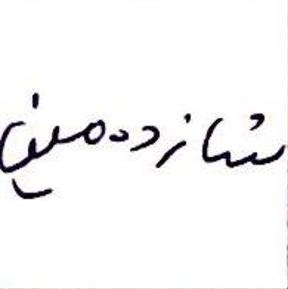 شانزدهمین